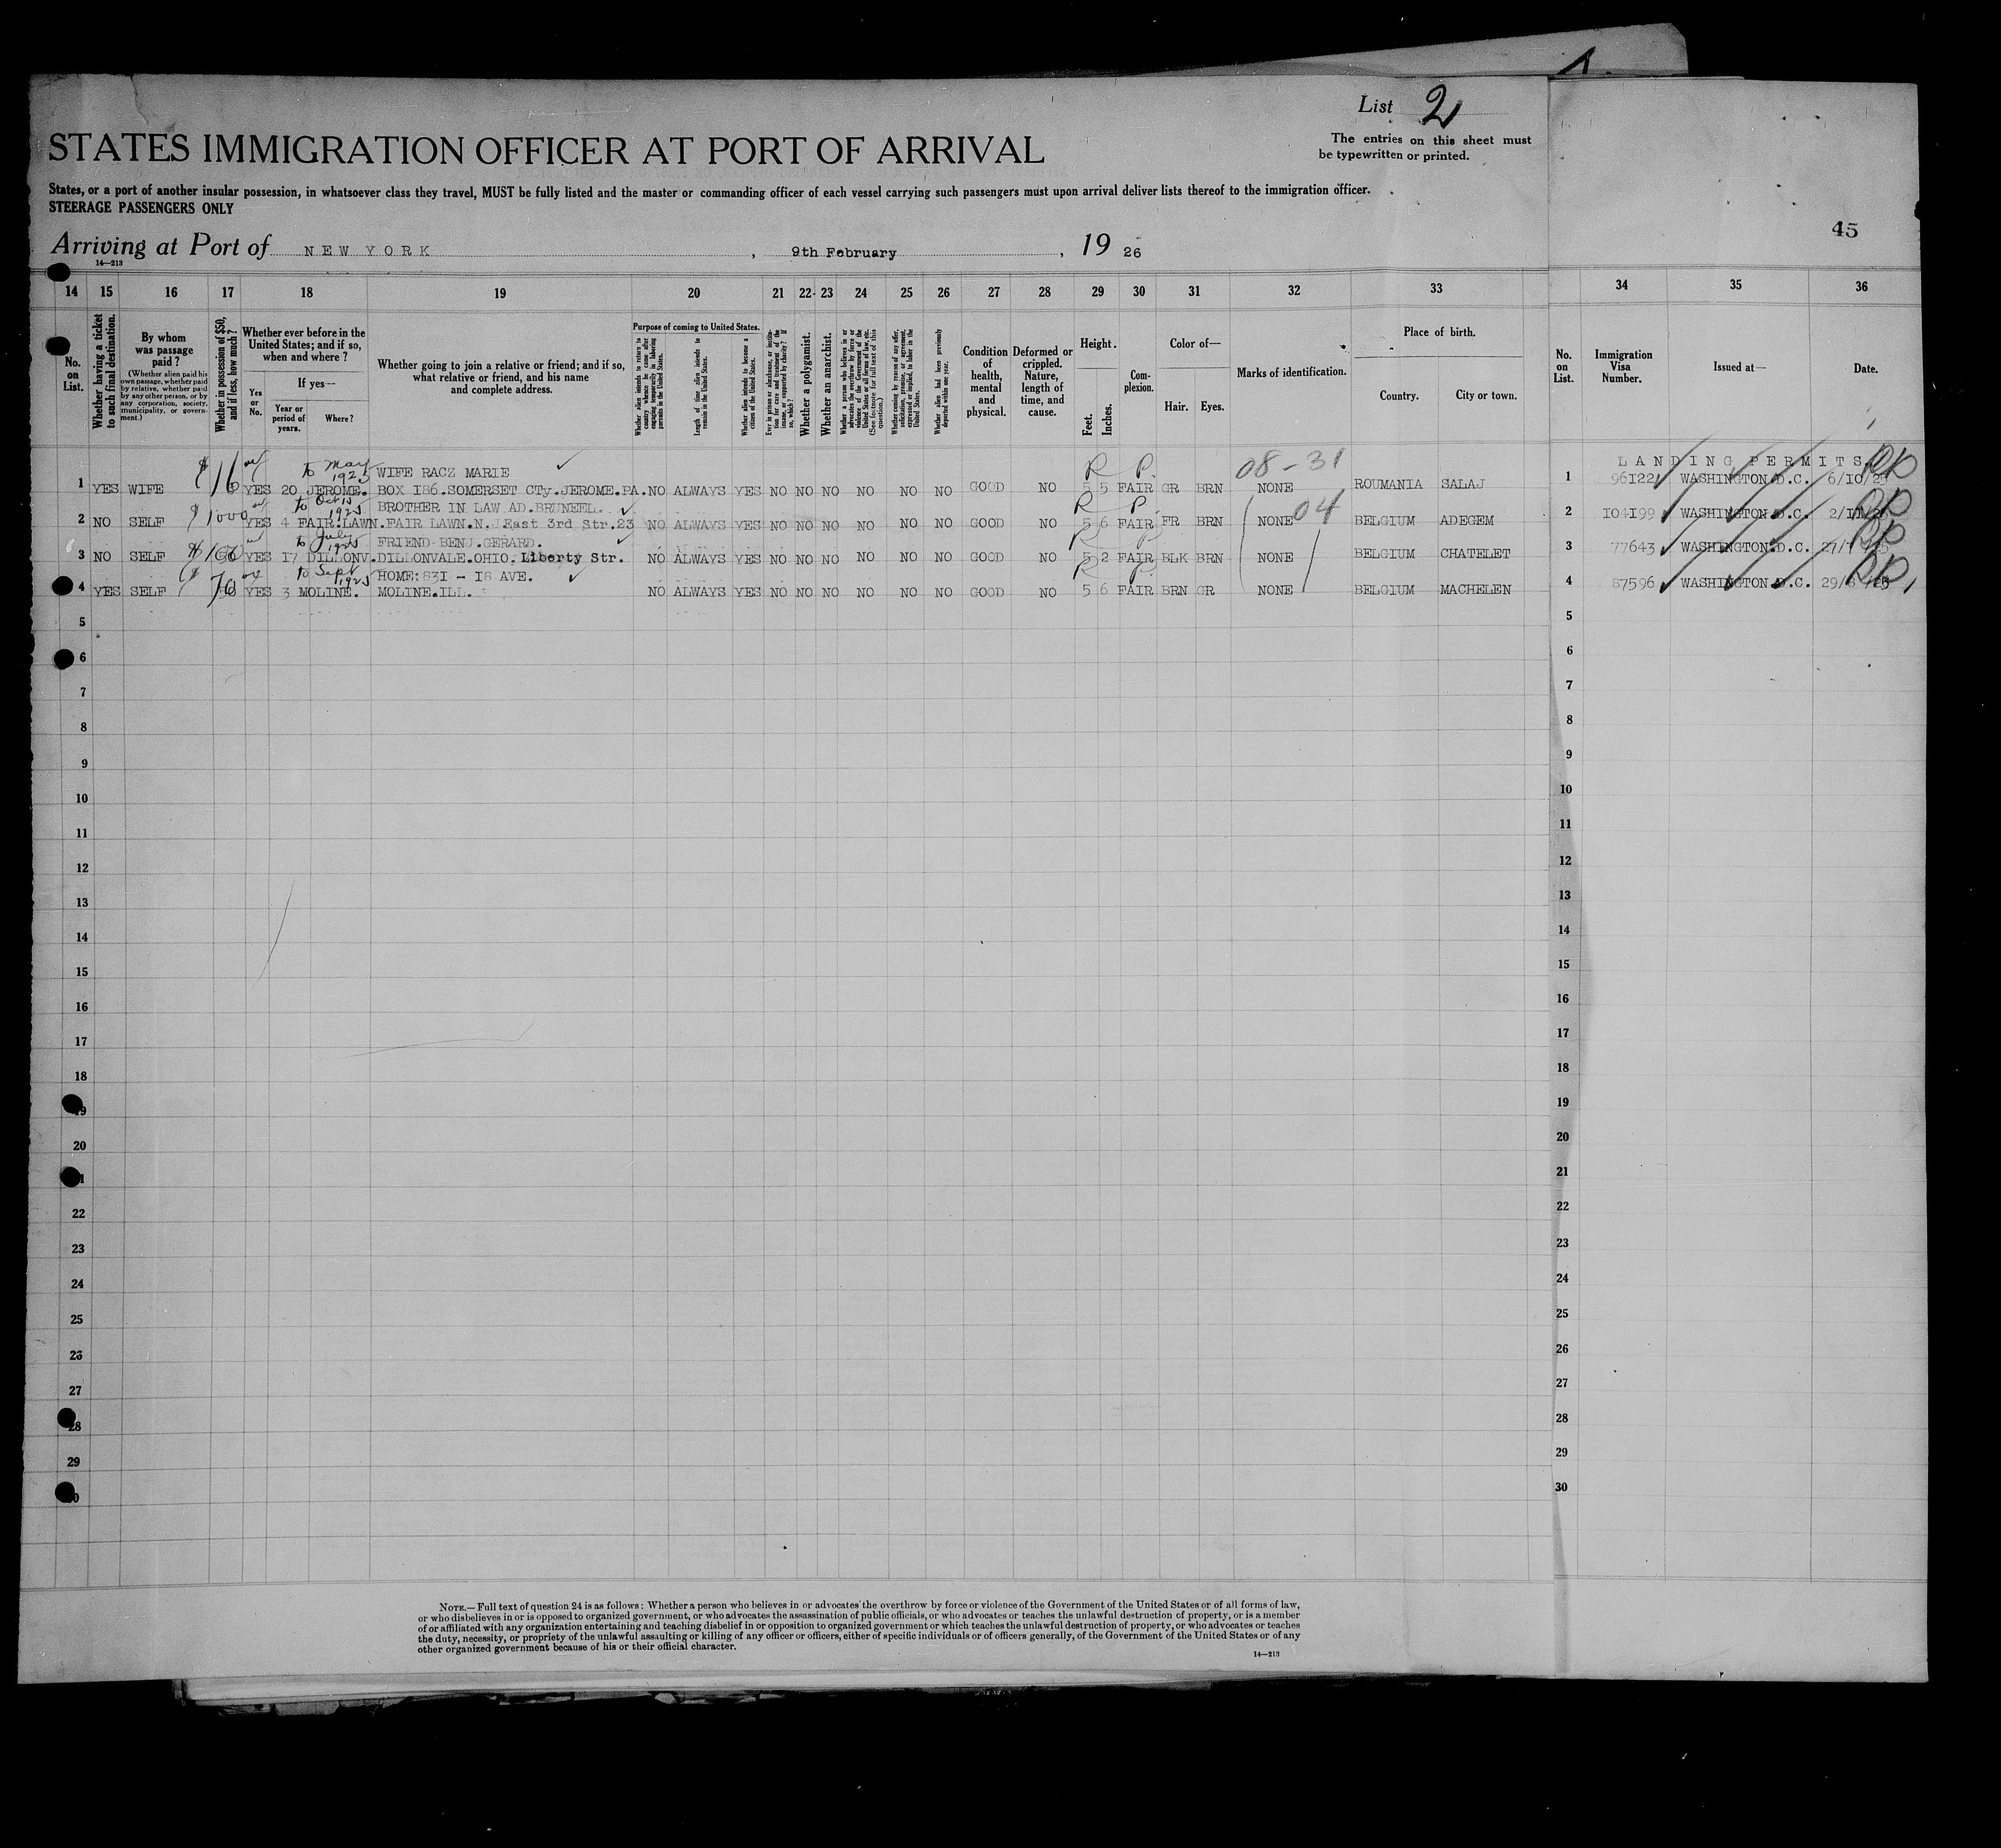 List 2
The entries on this sheet must
be typewritten or printed.
STATES IMMIGRATION OFFICER AT PORT OF ARRIVAL
States, or a port of another insular possession, in whatsoever class they travel, MUST be fully listed and the master or commanding officer of each vessel carrying such passengers must upon arrival deliver lists thereof to the immigration officer.
STEERAGE PASSENGERS ONLY
45
Arriving at Port of NEW YORK, 9th February, 19 26
14—213
14 15 16 17 18 19 20 21 22 23 24 25 26 27 28 29 30 31 32 33 34 35 36
No. on List.
Whether having a ticket to such final destination.
By whom was passage paid?
(Whether alien paid his own passage, whether paid by relative, whether paid by any other person, or by any corporation, society, municipality, or government.)
Whether in possession of $50, and if less, how much?
Whether ever before in the United States; and if so, when and where?
Yes or No.
If yes—
Year or period of years.
Where?
Whether going to join a relative or friend; and if so, what relative or friend, and his name and complete address.
Purpose of coming to United States.
Whether alien intends to return to country whence he came after engaging temporarily in laboring pursuits in the United States.
Length of time alien intends to remain in the United States.
Whether alien intends to become a citizen of the United States.
Ever in prison or almshouse, or institution for care and treatment of the insane, or supported by charity? If so, which?
Whether a polygamist.
Whether an anarchist.
(See footnote for full text of this question.)
Whether coming by reason of any offer, solicitation, promise, or agreement, expressed or implied, to labor in the United States.
Whether alien had been previously deported within one year.
Condition of health, mental and physical.
Deformed or crippled. Nature, length of time, and cause.
Height.
Feet.
Inches.
Complexion.
Color of—
Hair. Eyes.
Marks of identification.
Place of birth.
Country. City or town.
No. on List.
Immigration Visa Number.
Issued at—
Date.
to May 1925 WIFE RACZ MARIE R P. 08-31 LANDING PERMITS
1 YES WIFE YES 20 JEROME. BOX I86.SOMERSET CTy.JEROME.PA. NO ALWAYS YES NO NO NO NO NO NO GOOD NO 5 5 FAIR GR BRN NONE ROUMANIA SALAJ 1 96I22 WASHINGTON D.C. 6/10/25
to Oct 1925 BROTHER IN LAW AD.BRUNEEL. R P. 04
2 NO SELF $1000 YES 4 FAIR LAWN.FAIR LAWN.N.J East 3rd Str.23 NO ALWAYS YES NO NO NO NO NO NO GOOD NO 5 6 FAIR FR BRN NONE BELGIUM ADEGEM 2 I04I99 WASHINGTON D.C.
to July 1925 FRIEND BENJ.GERARD. R P
3 NO SELF YES I7 DILLONV.DILLONVALE.OHIO. Liberty Str. NO ALWAYS YES NO NO NO NO NO NO GOOD NO 5 2 FAIR BLK BRN NONE BELGIUM CHATELET 3 77643 WASHINGTON D.C.
to Sept 1925 HOME:83I - I8 AVE. R P.
4 YES SELF YES 3 MOLINE. MOLINE.ILL. NO ALWAYS YES NO NO NO NO NO NO GOOD NO 5 6 FAIR BRN GR NONE BELGIUM MACHELEN 4 87596 WASHINGTON D.C.
5 5
6 6
7 7
8 8
9 9
10 10
11 11
12 12
13 13
14 14
15 15
16 16
17 17
18 18
19 19
20 20
21
22 22
23 23
24 24
25 25
26 26
27 27
28 28
29 29
30
NOTE.—Full text of question 24 is as follows: Whether a person who believes in or advocates the overthrow by force or violence of the Government of the United States or of all forms of law,
or who disbelieves in or is opposed to organized government, or who advocates the assassination of public officials, or who advocates or teaches the unlawful destruction of property, or is a member
of or affiliated with any organization entertaining and teaching disbelief in or opposition to organized government or which teaches the unlawful destruction of property, or who advocates or teaches
the duty, necessity, or propriety of the unlawful assaulting or killing of any officer or officers, either of specific individuals or of officers generally, of the Government of the United States or of any
other organized government because of his or their official character.
14—213